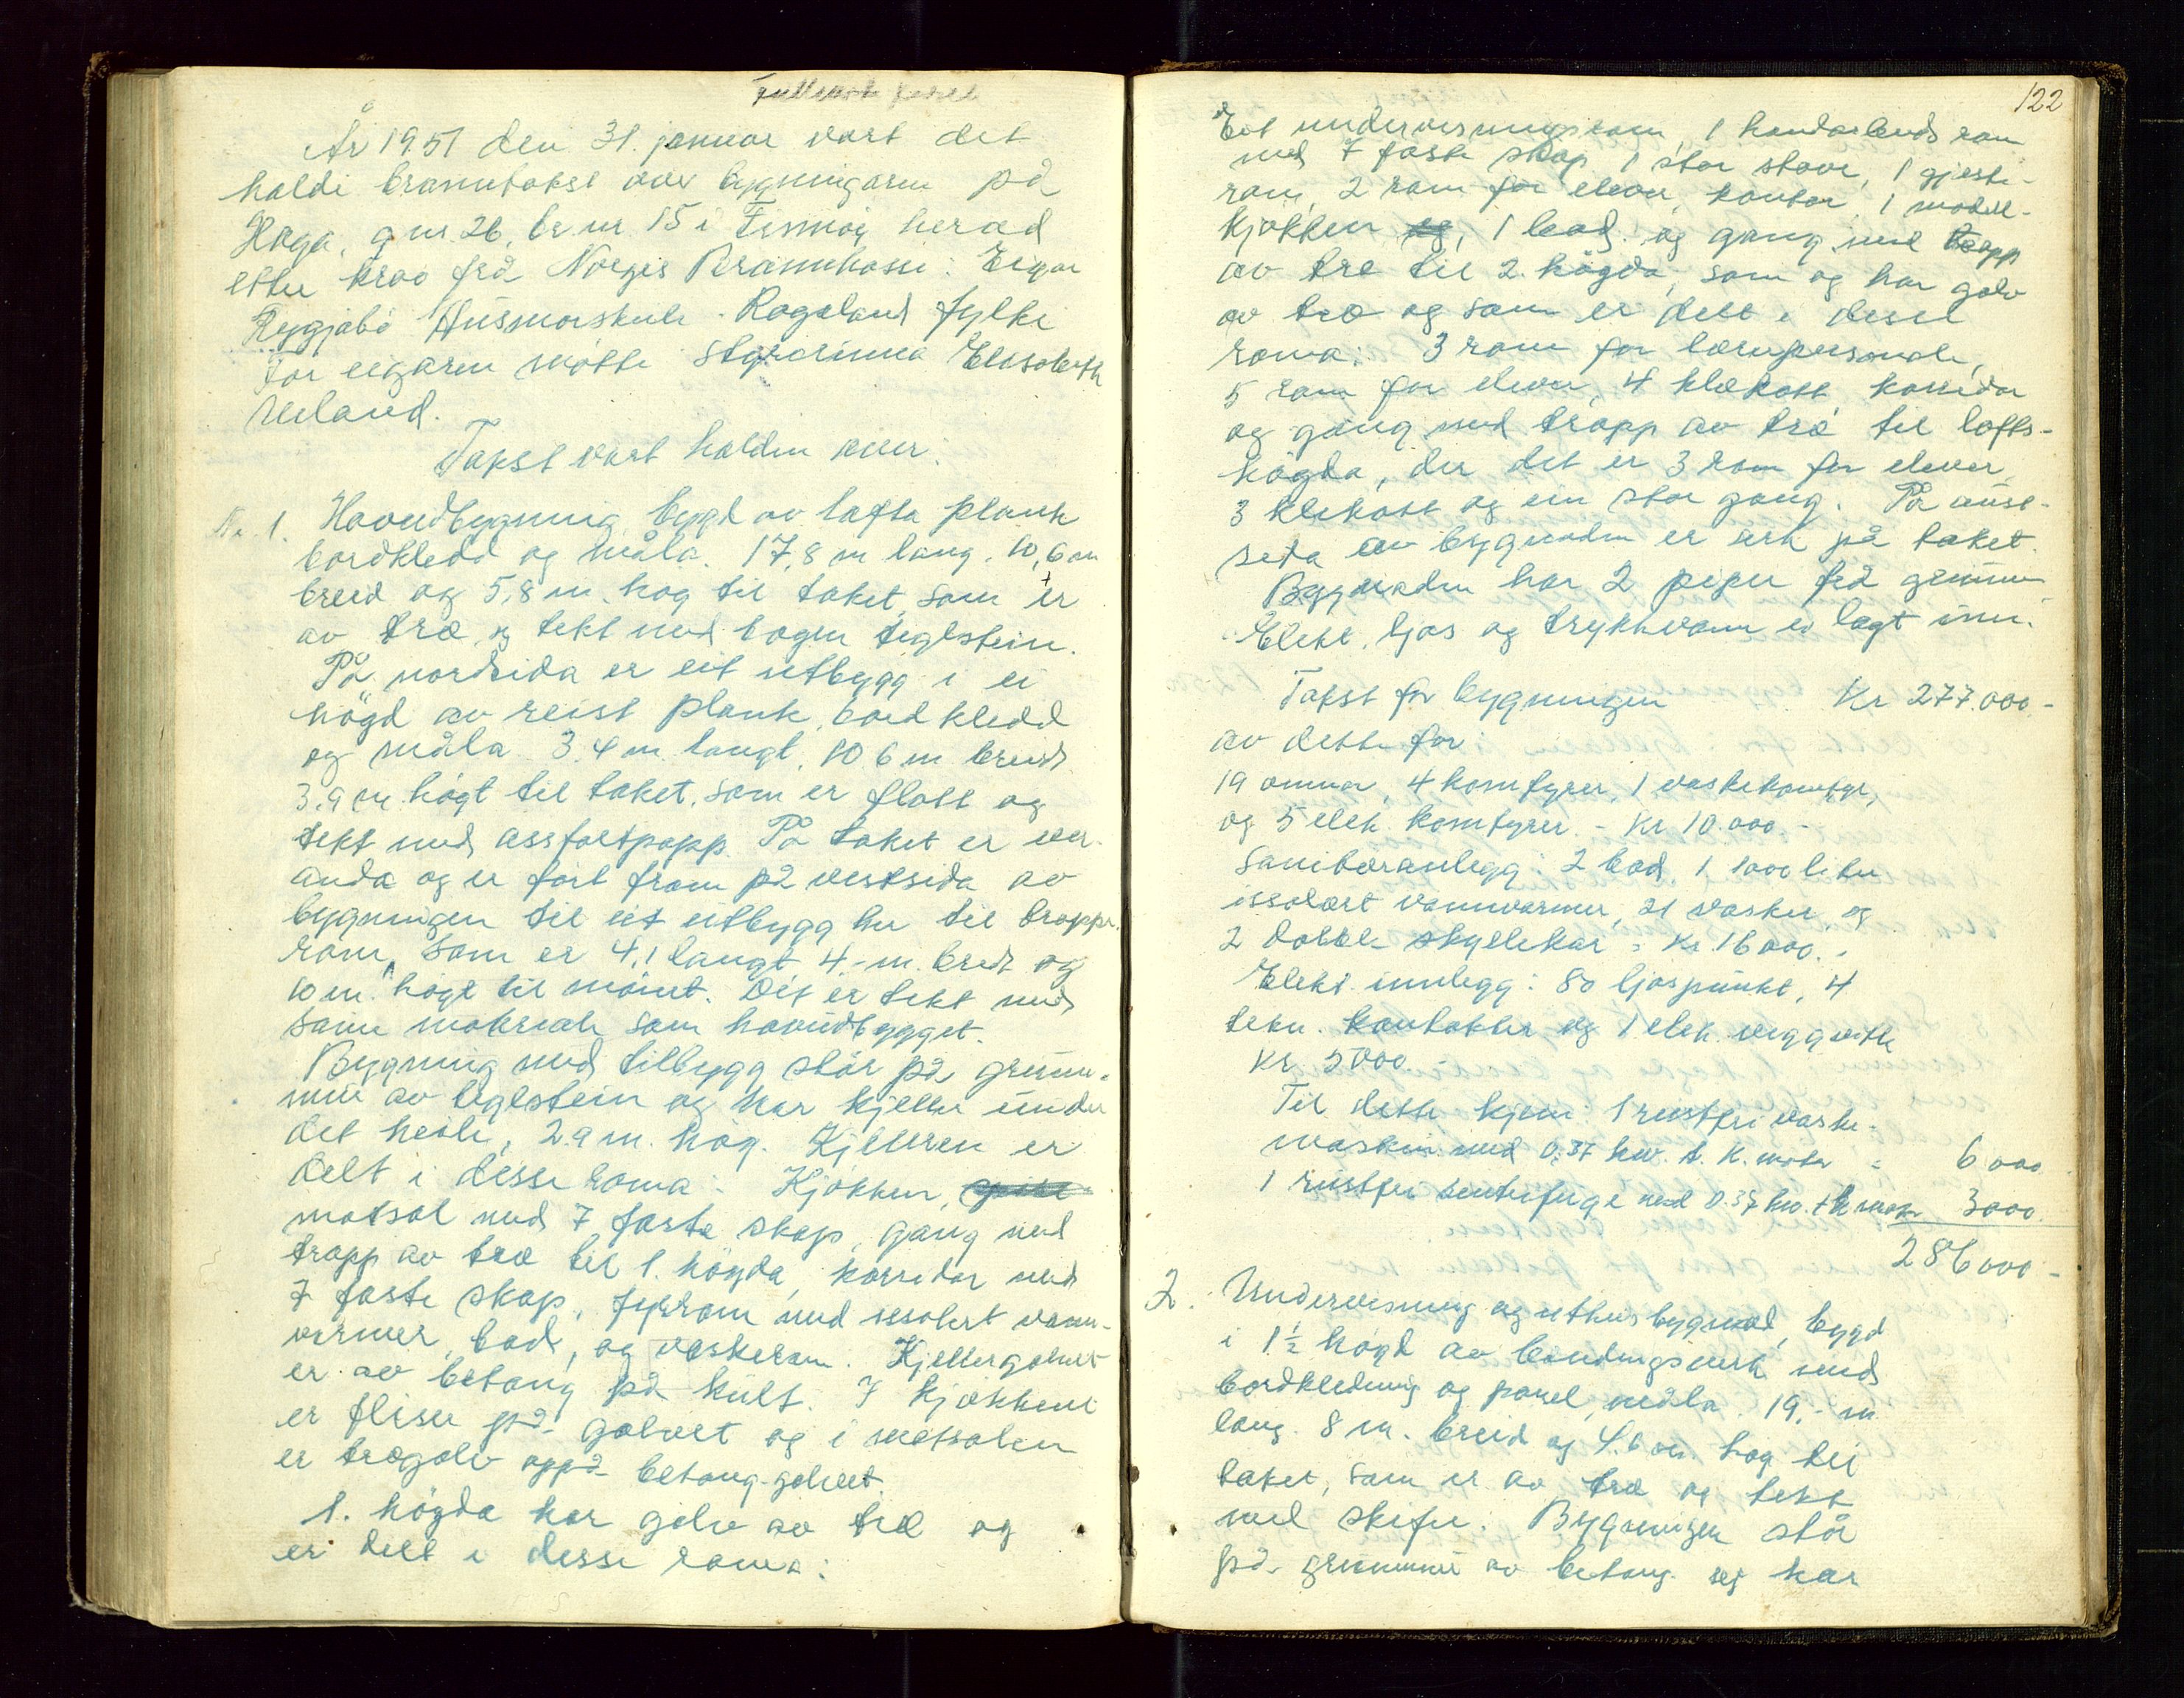 År 1951 den 31. januar vart det
haldi branntakst over bygningarne på
Haga, g nr. 26, br nr 15 i Finnøy herad
etter krav frå Norges Brannkasse: Eigar
Rygjabø Husmorskule - Rogaland fylke
For eigaren møtte styrarinna Elisabeth
Ueland.
Takst vart halden over:
Nr. 1. Hovudbygning bygd av lafta plank
bordkledd og måla. 17,8 m lang. 10,6 m
breid og 5,8 m. høg til taket, som er
av tre og tekt med bogen teglstein.
På nordsida er eit utbygg i ei
högd av reist plank, bordkledd
og måla 3.4 m langt, 10 6 m breidt
3.9 m högt til taket, som er flatt og
tekt med assfaltpapp. På taket er ver-
anda og er fört fram på vestsida av
bygningen til eit utbygg her til trappe-
rom, som er 4,1 langt 4,- m. breidt og
10 m. högt til mönet. Det er tekt med
same materiale som hovudbygget.
Bygning med tilbygg står på grunn-
mur av teglstein og har kjellar under
det heile, 2.9 m. høg. Kjellaren er
delt i disse roma: Kjøkken,
matsal med 7 faste skap, gang med
trapp av tre til 1. högda, korridor med
7 faste skap, fyrrom med isolert vann-
varmer, bad, og vaskerom. Kjellergolvet
er av betong på kult. I kjøkkene
er fliser på golvet og i matsalen
er tregolv oppå betong-golvet.
1. högda har golv av tre og
er delt i desse roma:
122
Eit undervisningsrom, 1 handarbeids rom
med 7 faste skap, 1 stor stove, 1 gjeste-
rom, 2 rom for elever, kontor, 1 modell-
kjøkken og, 1 bad. og gang med trapp
av tre til 2. högda, som og har golv
av tre og som er delt i desse
roma: 3 rom for lærarpersonale,
5 rom for elever, 4 klekott korridor
og gang med trapp av tre til lofts-
högda, der det er 3 rom for elever
3 klekott og ein stor gang. På aust-
sida av bygnaden er ark på taket.
Bygnaden har 2 piper frå grunnen
Elekt. ljos og trykkvann er lagt inn.
Takst for bygningen Kr 277.000-
av dette for:
19 omnar, 4 komfyrer, 1 vaskekomfyr,
og 5 elek. komfyrer. - Kr 10.000.-
Sanitæranlegg: 2 bad. 1 1000 liter
issolert vannvarmer, 21 vasker og
2 doble skyllekar = Kr. 16 000.-
Elekt. innlegg: 80 ljospunkt, 4
tekn. kontakter og 1 elek. veggvifte
Kr. 5000.-
Til dette kjem: 1 rustfri vaske-
maskin med 0,37 kw. t. k. motor = 6 000
1 rustfri sentrifuge med 0.37 kw. t k motor 3000.
286 000-
2. Undervisning og uthusbygnad, bygd
i 1½ högd av bindingsverk med
bordkledning og panel, måla. 19,- m
lang. 8 m. breid og 4.6 m. høg til
taket, som er av tre og tekt
med skifer. Bygningen står
på grunnmur av betong og har